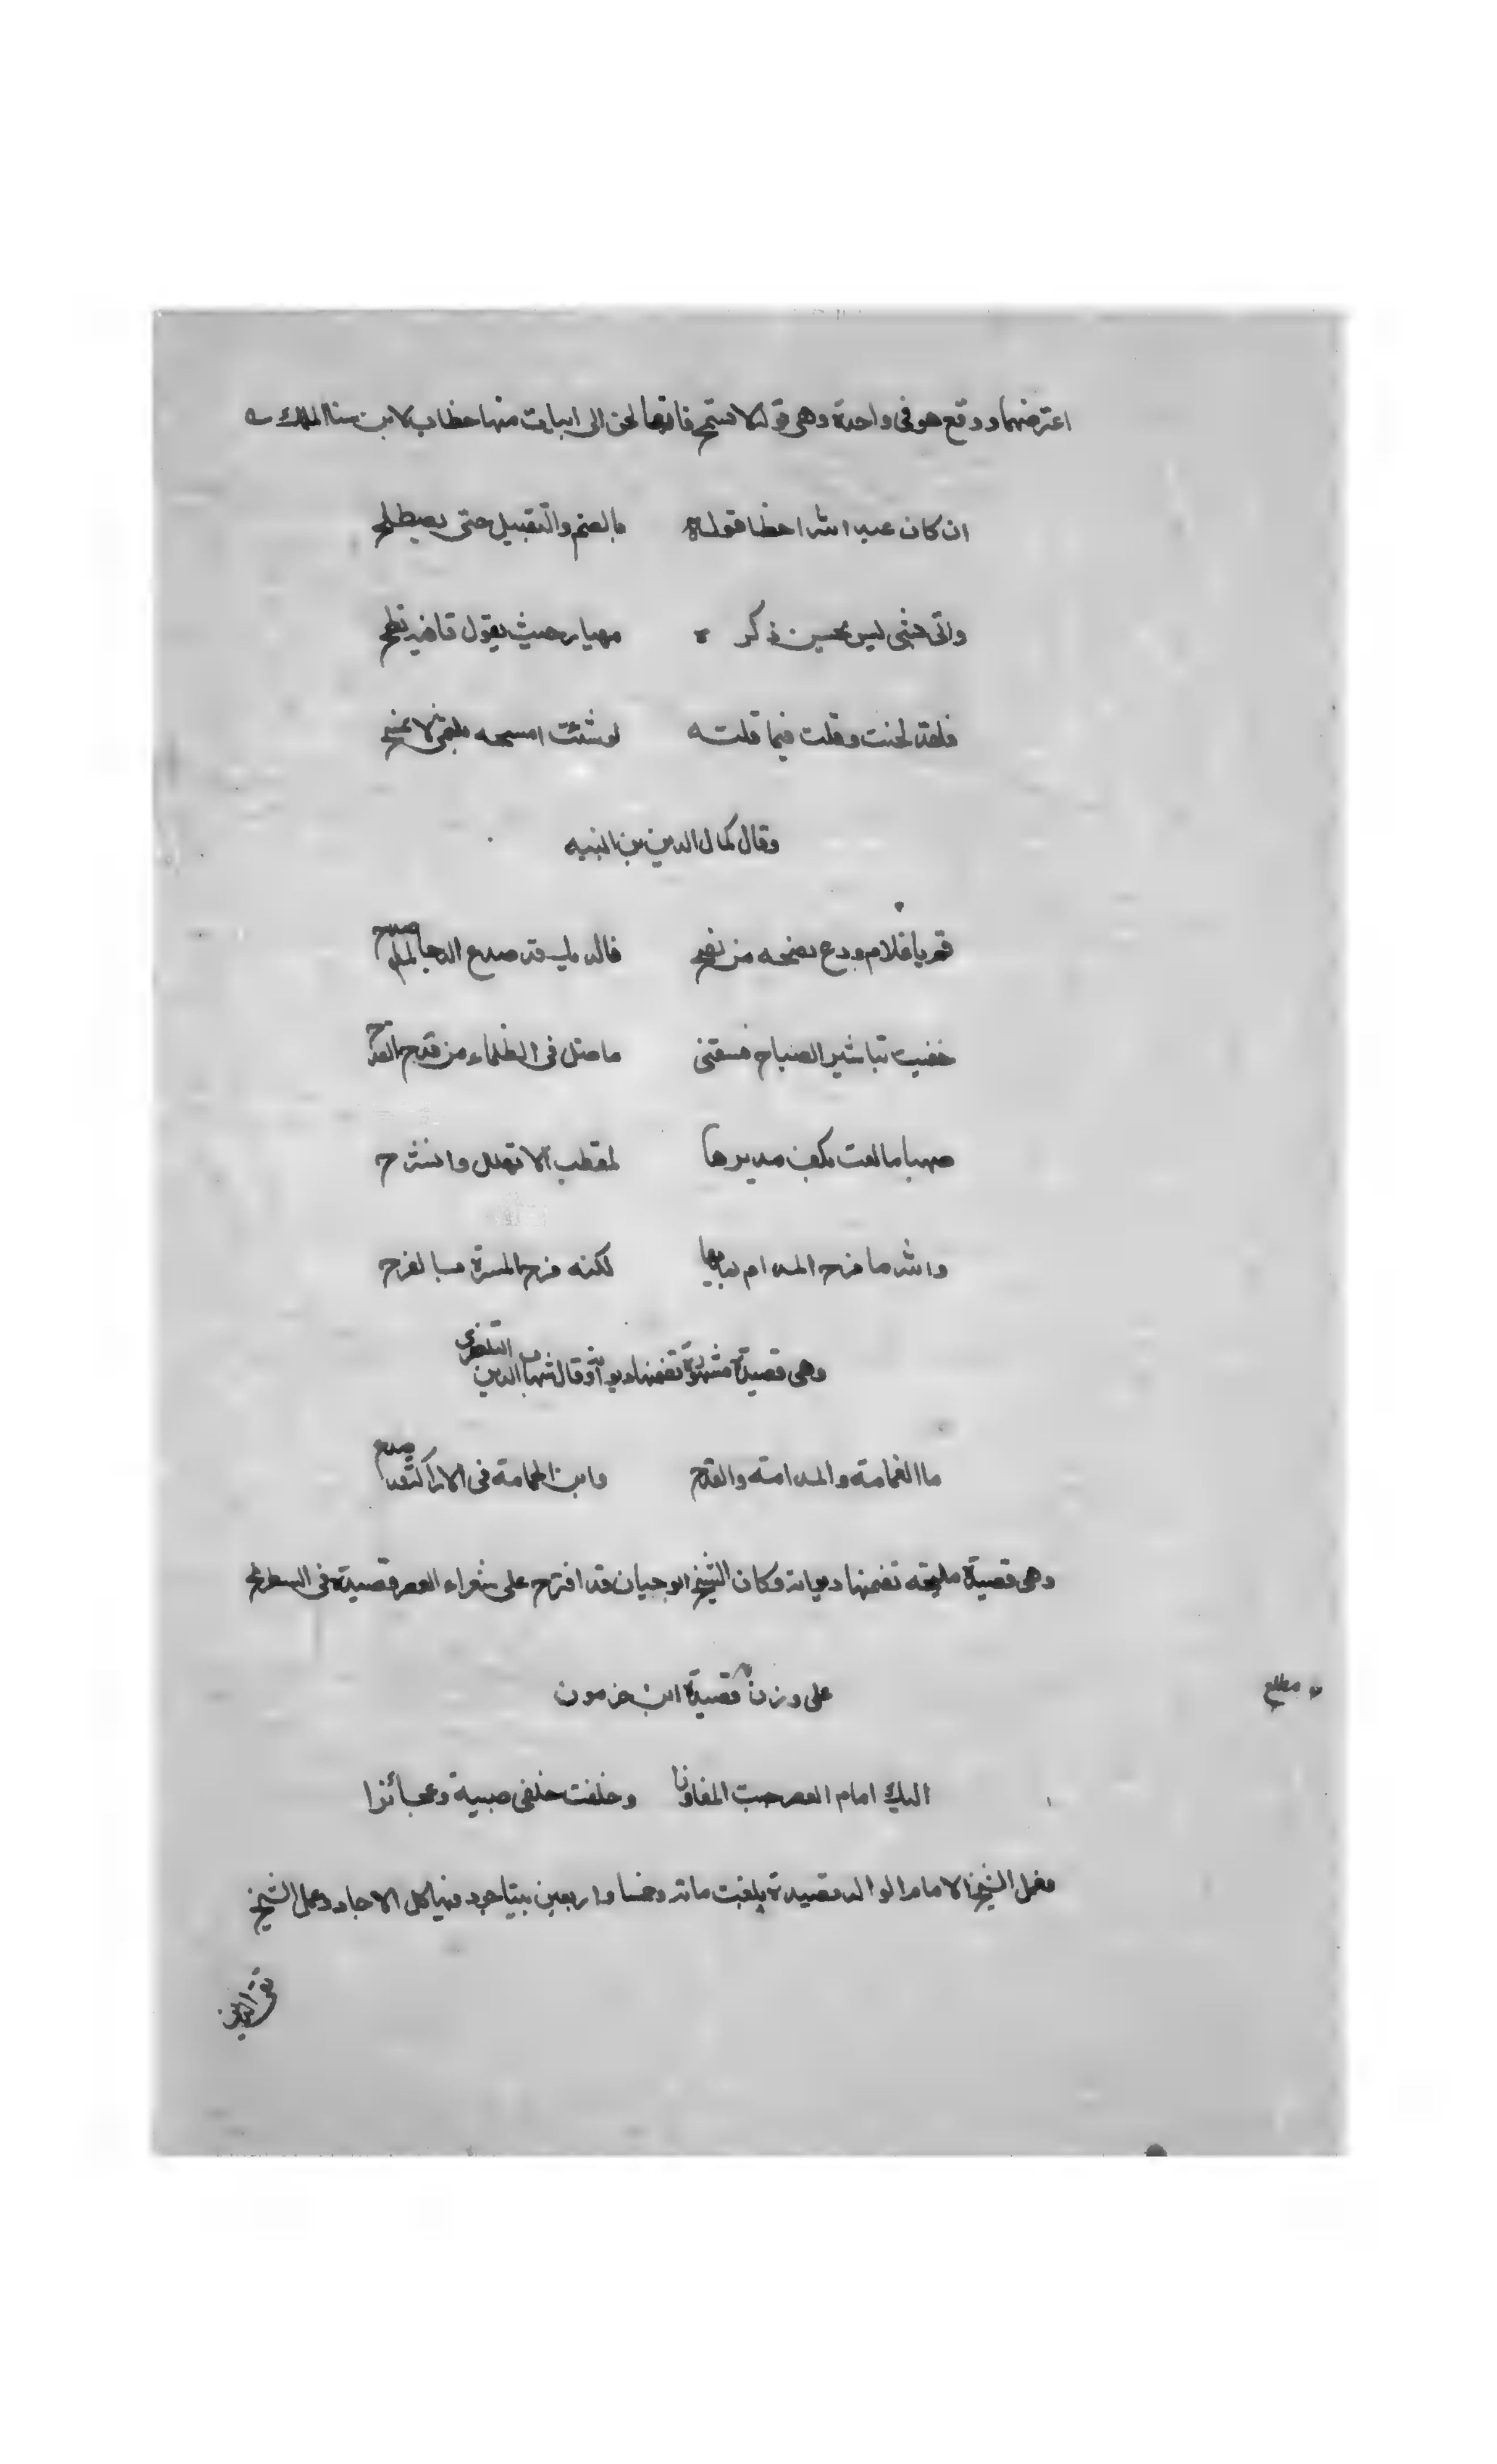 اعترضهما ووقع هو في واحدة وهي قوله لا تستمح فانها لحن الى ابيات منها خطاب لابن سنا الملك
ان كان عبد الله اخطا قوله بالضم والتقبيل حتى يصطلح
واتى بشي ليس يحسن ذكره مهيار حيث يقول قافية نطح
فلقد لحنت وقلت فيما قلته لو شئت امسحه بلثمي لا نمسح
وقال كمال الدين بن النبيه
قم يا غلام ودع نصيحة من نصح فالديك قد صدع الدجا لما صدح
خفيت تباشير الصباح فسقني ما ضل في الظلماء من قدح القدح
صهبا ما لمعت بكف مديرها لمقطب الا تهلل وانشرح
والله ما مزج المدام بمايها لكنه مزج المسرة بالفرح
وهي قصيدة مشهورة تضمنها ديوانه وقال شهاب الدين التلعفري
ما الغمامة والمدامة والقدح وابن الحمامة في الاراكة قد صدح
وهي قصيدة مليحة تضمنها ديوانه وكان الشيخ ابو حيان قد اقترح على شعراء العصر قصيدة في الشطرنج
على وزن قصيدة ابن حزمون
مطلع
اليك امام العصر جبت المفاوزا وخلفت خلفي صبية وعجائزا
فعمل الشيخ الامام الوالد قصيدة بلغت مائة وخمسا واربعين بيتا جود فيها كل الاجادة وعمل الشيخ
تقي الدين